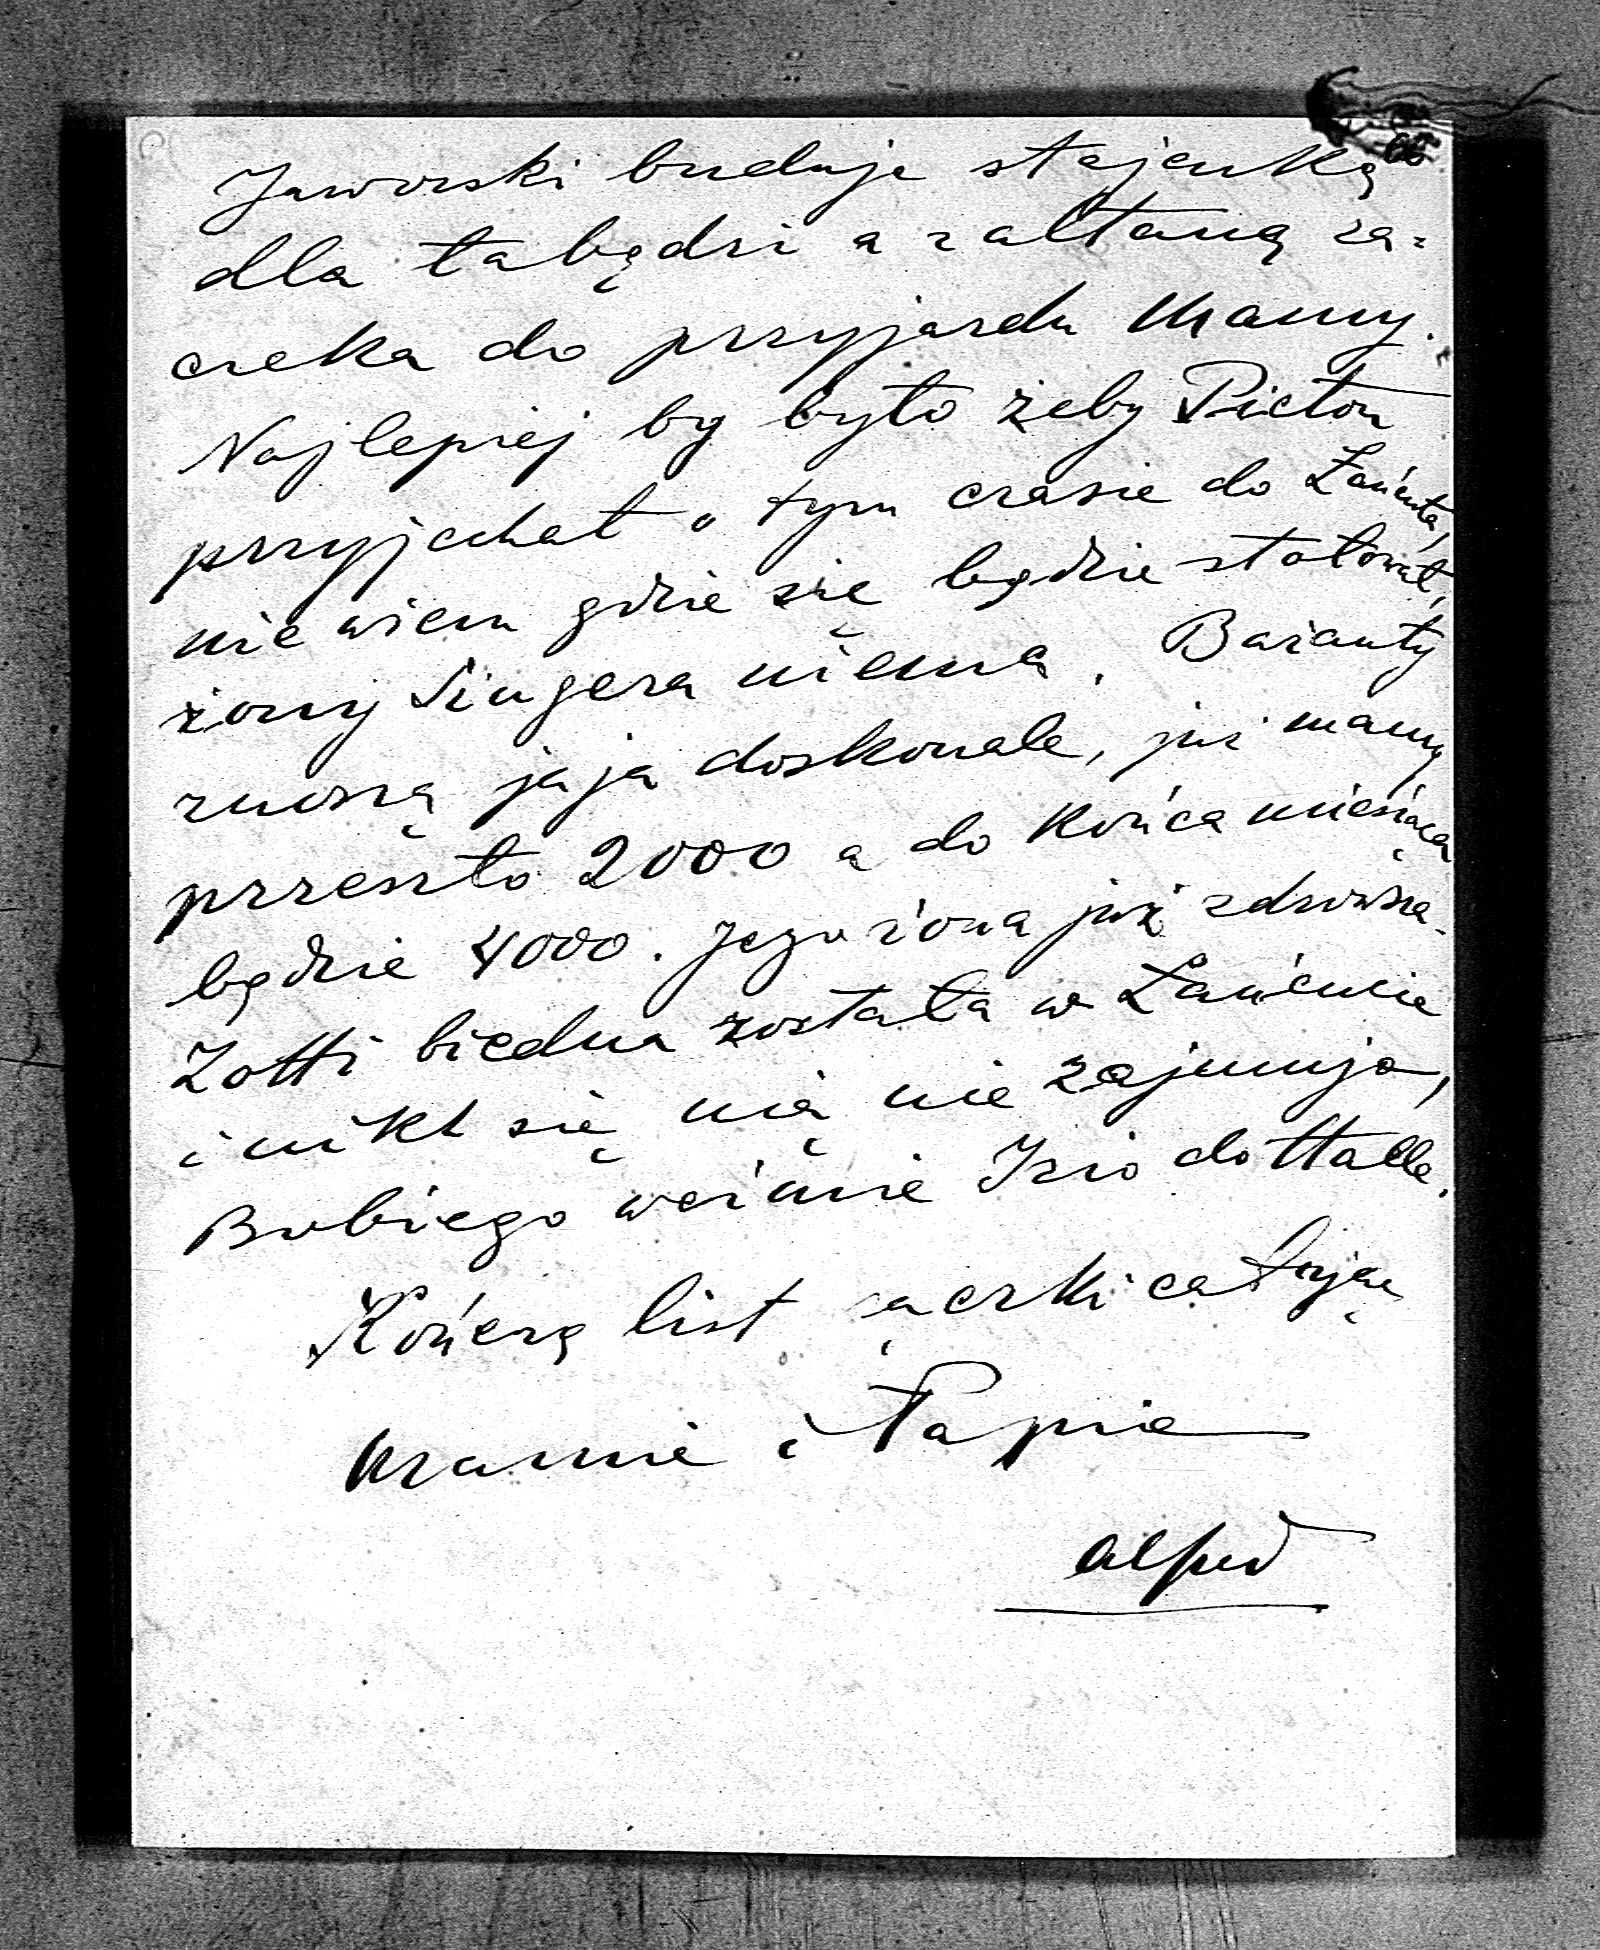 Jaworski buduje stajenkę
dla łabędzi a z altaną za=
czeka do przyjazdu Mamy.
Najlepiej by było żeby Picton
przyjechał o tym czasie do Łańcuta,
nie wiem gdzie się będzie stołował,
żony Singera niema. Bażanty
znoszą jaja doskonale, już mamy
przeszło 2000 a do końca miesiąca
będzie 4000. Jego żona już zdrowsza.
Lotti biedna została w Łańcucie
i nikt się nią nie zajmuje,
Bobiego weźmie Izio do Halle.
Kończę list rączki całując
Mamie i Papie
Alfred